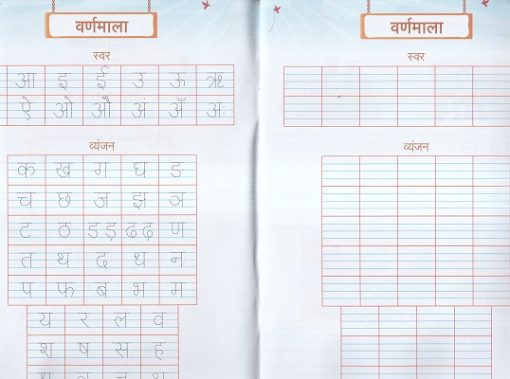 वर्णमाला
स्वर
आ इ ई उ ऊ ऋ
ऐ ओ औ अ अँ अः
व्यंजन
क ख ग घ ङ
च छ ज झ ञ
ट ठ ड ड़ ढ ढ़ ण
त थ द ध न
प फ ब भ म
य र ल व
श ष स ह
वर्णमाला
स्वर
व्यंजन